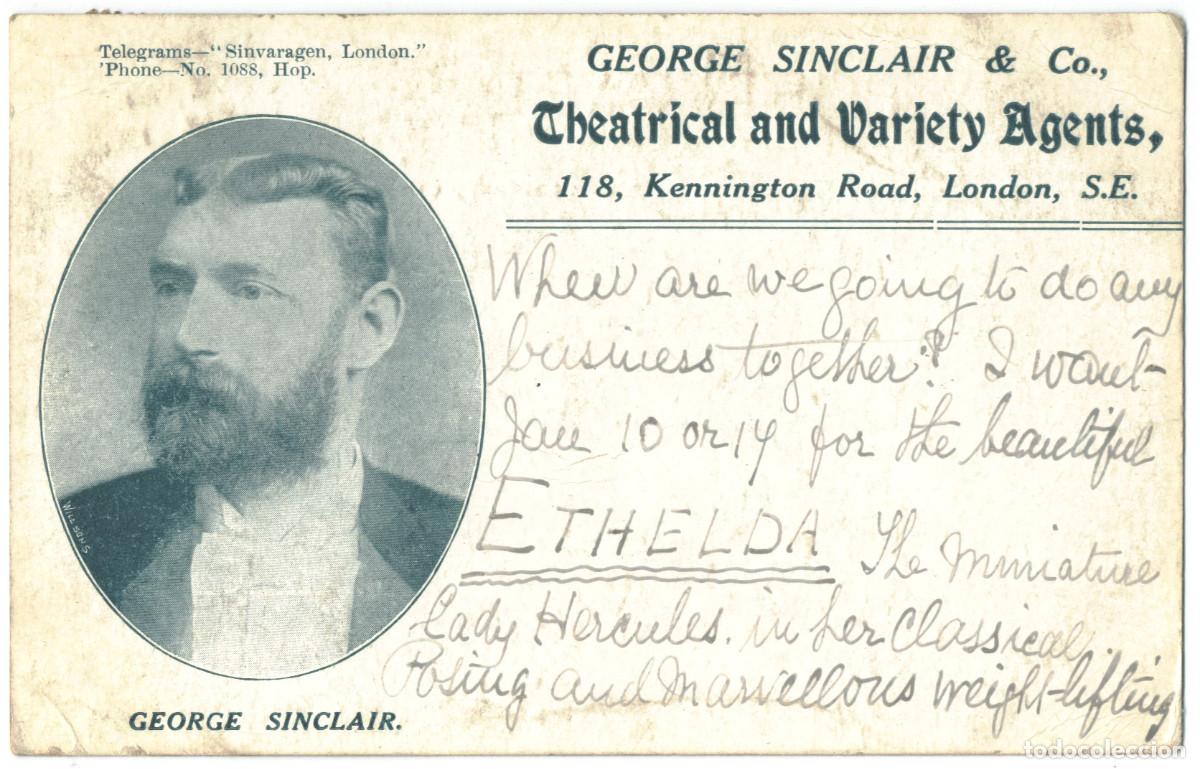 Telegrams—"Sinvaragen, London."
'Phone—No. 1088, Hop.
GEORGE SINCLAIR & Co.,
Theatrical and Variety Agents,
118, Kennington Road, London, S.E.
When are we going to do any
business together? I want
Jan 10 or 14 for the beautiful
ETHELDA The Miniature
Lady Hercules. in her Classical
Posing and Marvellous weight-lifting
WILSONS
GEORGE SINCLAIR.
todocoleccion